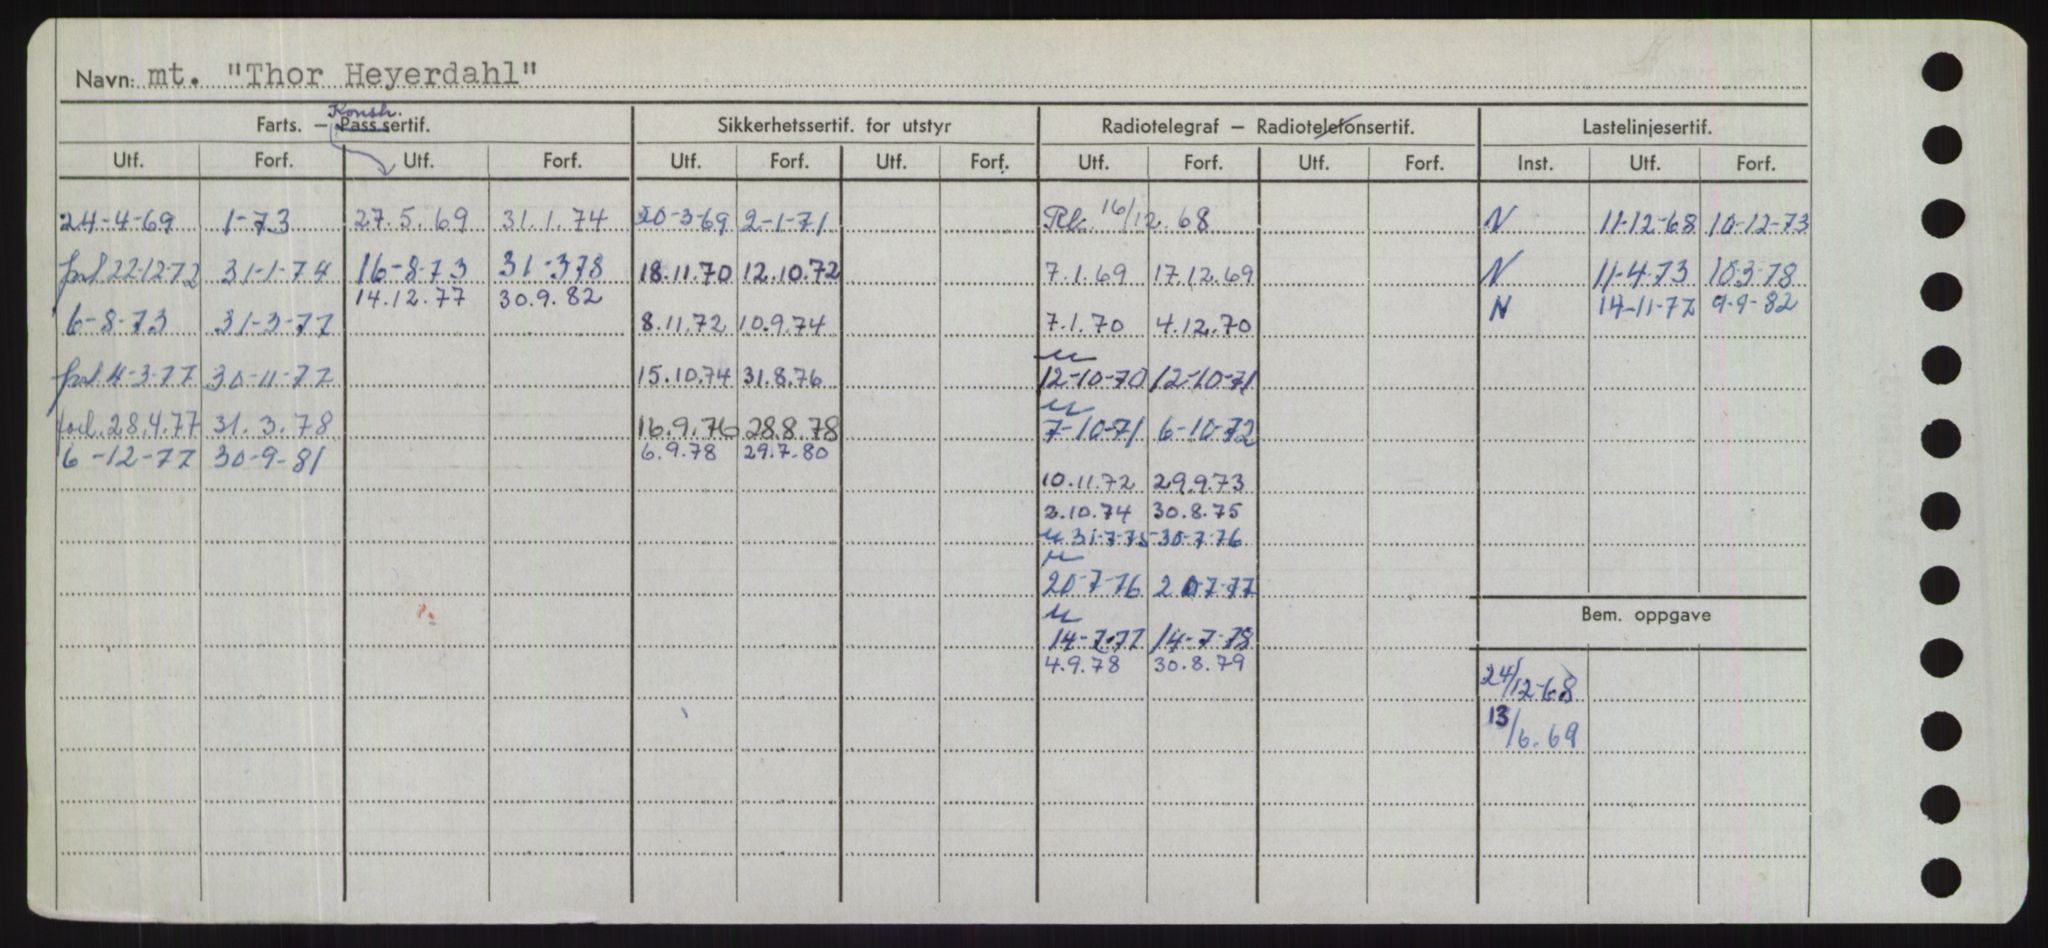 Navn: mt. "Thor Heyerdahl"
Konstr.
Farts. — Passsertif. Sikkerhetssertif. for utstyr Radiotelegraf — Radiotelefonsertif. Lastelinjesertif.
Utf. Forf. Utf. Forf. Utf. Forf. Utf. Forf. Utf. Forf. Utf. Forf. Inst. Utf. Forf.
24-4-69 1-73 27.5.69 31.1.74 20-3-69 2-1-71 16/12.68 N 11-12-68 10-12-73
forl. 22-12-72 31-1-74 16-8-73 31-3-78 18.11.70 12.10.72 7.1.69 17.12.69 N 11-4-73 10-3-78
14.12.77 30.9.82 N 14-11-77 9-9-82
6-8-73 31-3-77 8.11.72 10.9.74 7.1.70 4.12.70
forl. 4-3-77 30-11-77 15.10.74 31.8.76 12-10-70 12-10-71
forl. 28.4.77 31.3.78 16.9.76 28.8.78 7-10-71 6-10-72
6-12-77 30-9-81 6.9.78 29.7.80
10.11.72 29.9.73
2.10.74 30.8.75
31-7-75 30-7-76
20-7-76 20-7-77
Bem. oppgave
14-7-77 14-7-78
4.9.78 30.8.79
24/12-68
13/6.69